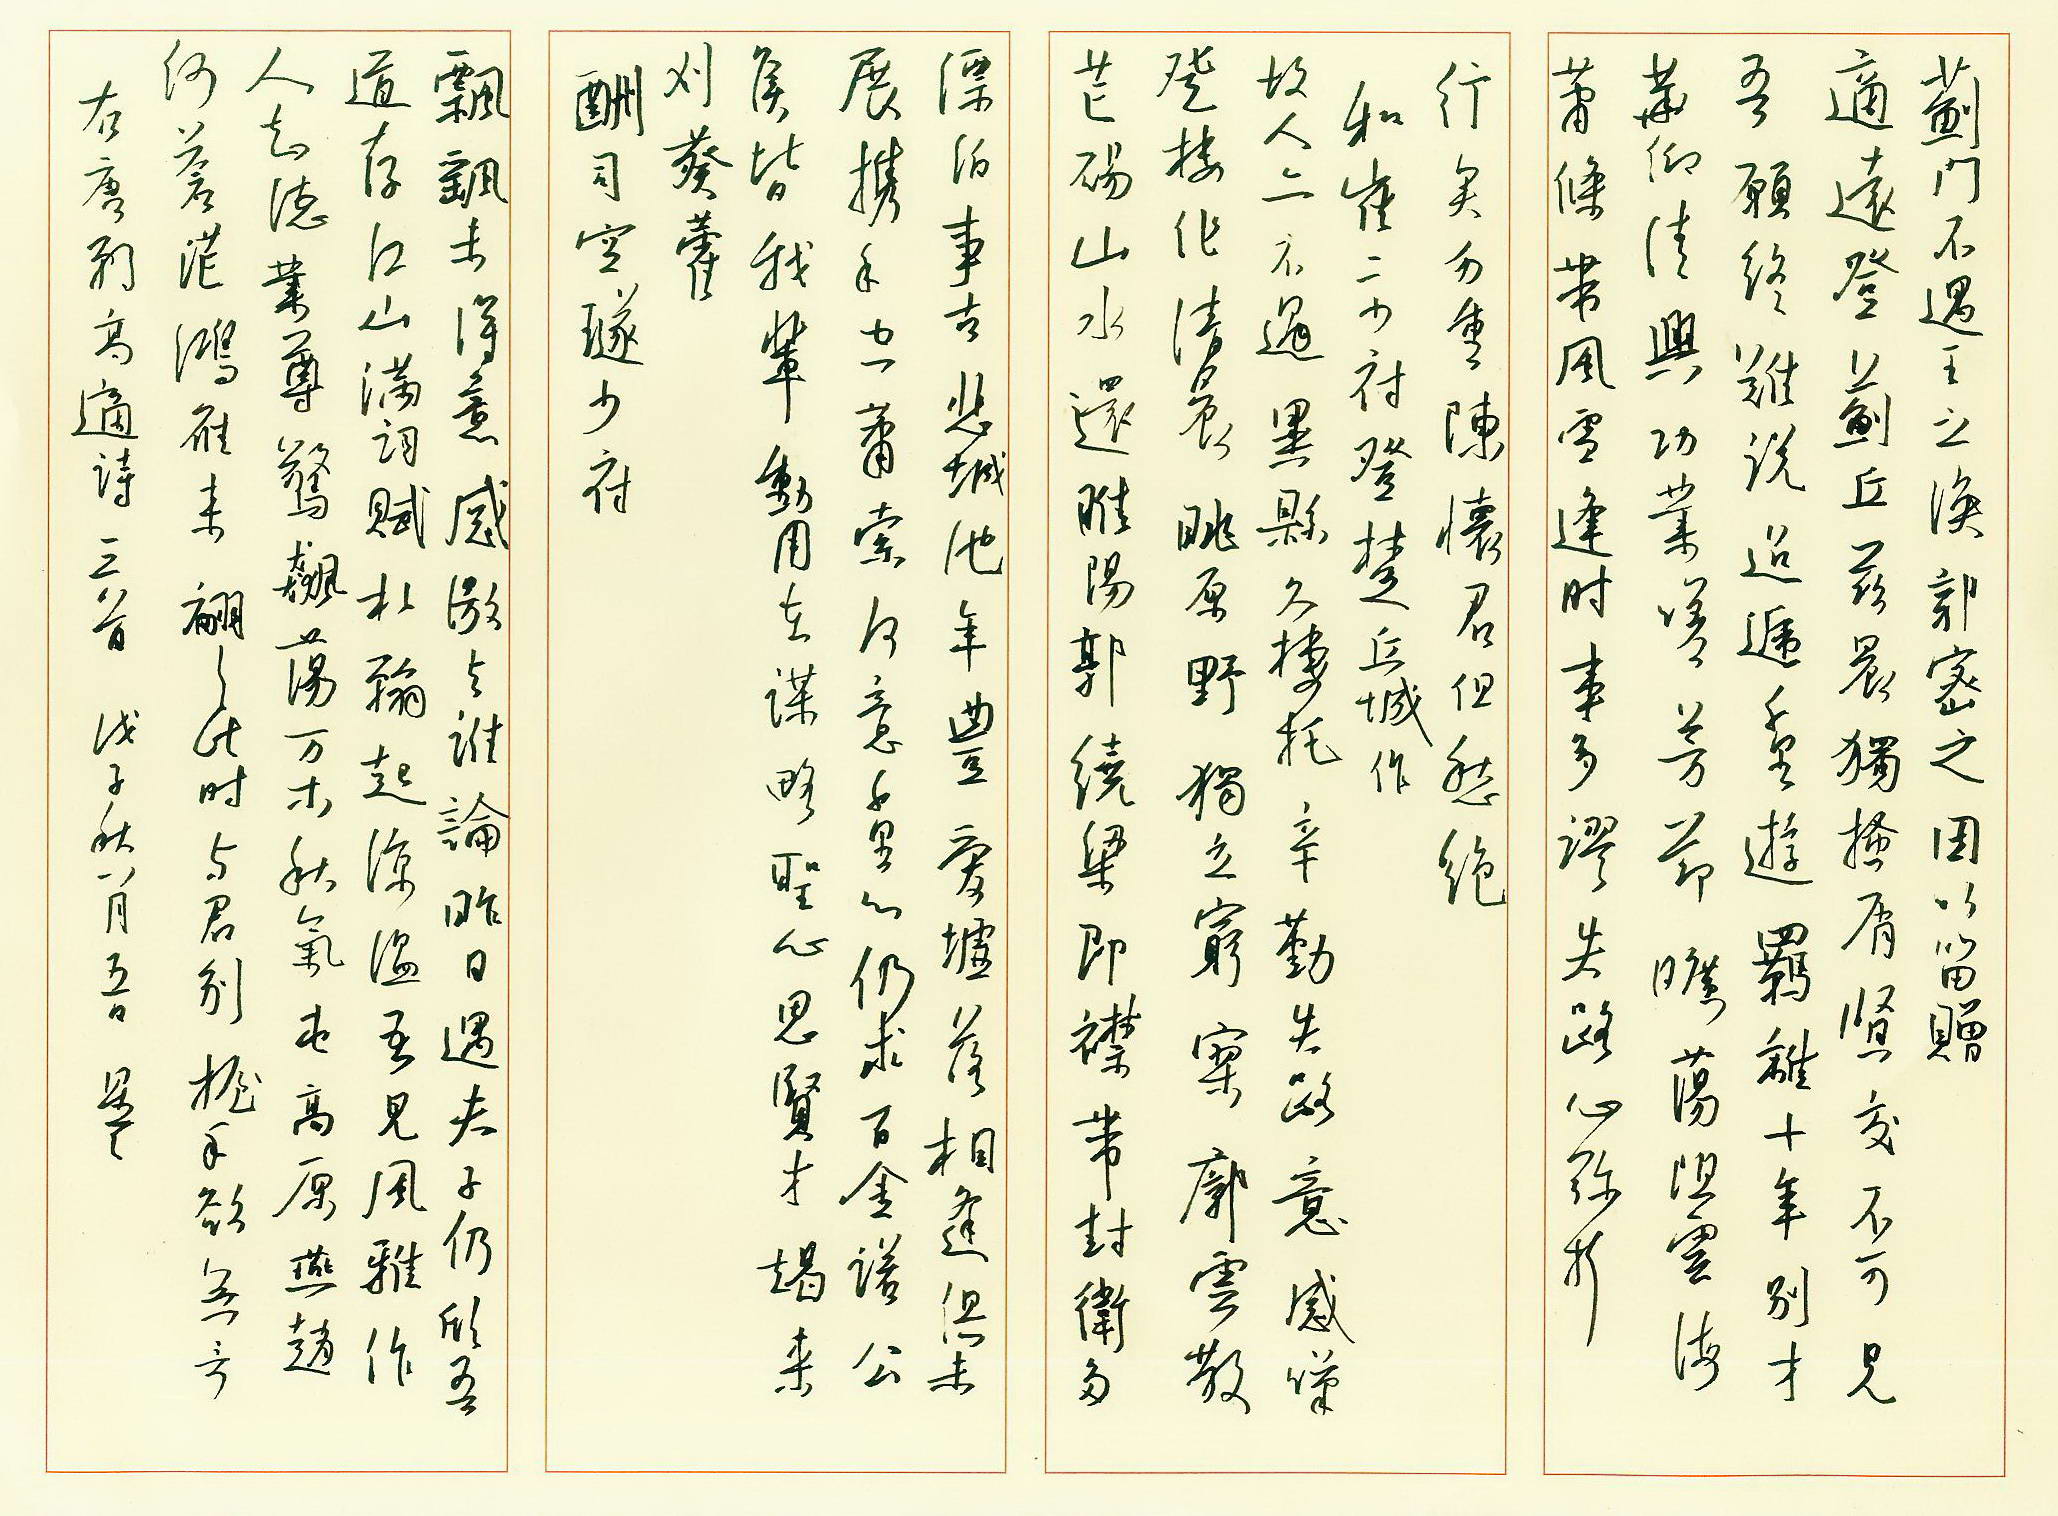 薊門不遇王之渙郭密之因以留贈
適遠登薊丘茲晨獨搔屑賢交不可見
吾願終難説迢遞千里遊羈離十年别才
華仰清興功業嗟芳節曠蕩阻雲海
蕭條帶風雪逢时事多謬失路心弥折
行矣勿重陳懷君但愁絶
和崔二少府登楚丘城作
故人亦不遇異縣久棲托辛勤失路意感嘆
登樓作清晨眺原野獨立窮寥廓雲散
芒碭山水還睢陽郭繞梁即襟帶封衛多
漂泊事古悲城池年豐愛墟落相逢俱未
展携手空蕭索何意千里心仍求百金諾公
侯皆我輩動用在謀略聖心思賢才朅来
刈葵藿
酬司空璲少府
飄颻未得意感激与誰論昨日遇夫子仍欣吾
道存江山滿詞賦札翰起涼温吾見風雅作
人知德業尊驚飆蕩万木秋氣屯高原燕趙
何蒼茫鴻雁来翩々此时与君别握手欲無言
右唐朝高適詩三首 戊子秋八月五日